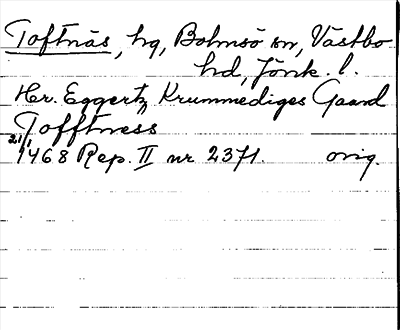 Toftnäs, hg, Bolmsö sn, Västbo
hd, Jönk. l.
Her. Eggertz Krummediges Gaard
Tofftness
21/1 1468 Rep. II nr 2371. orig.